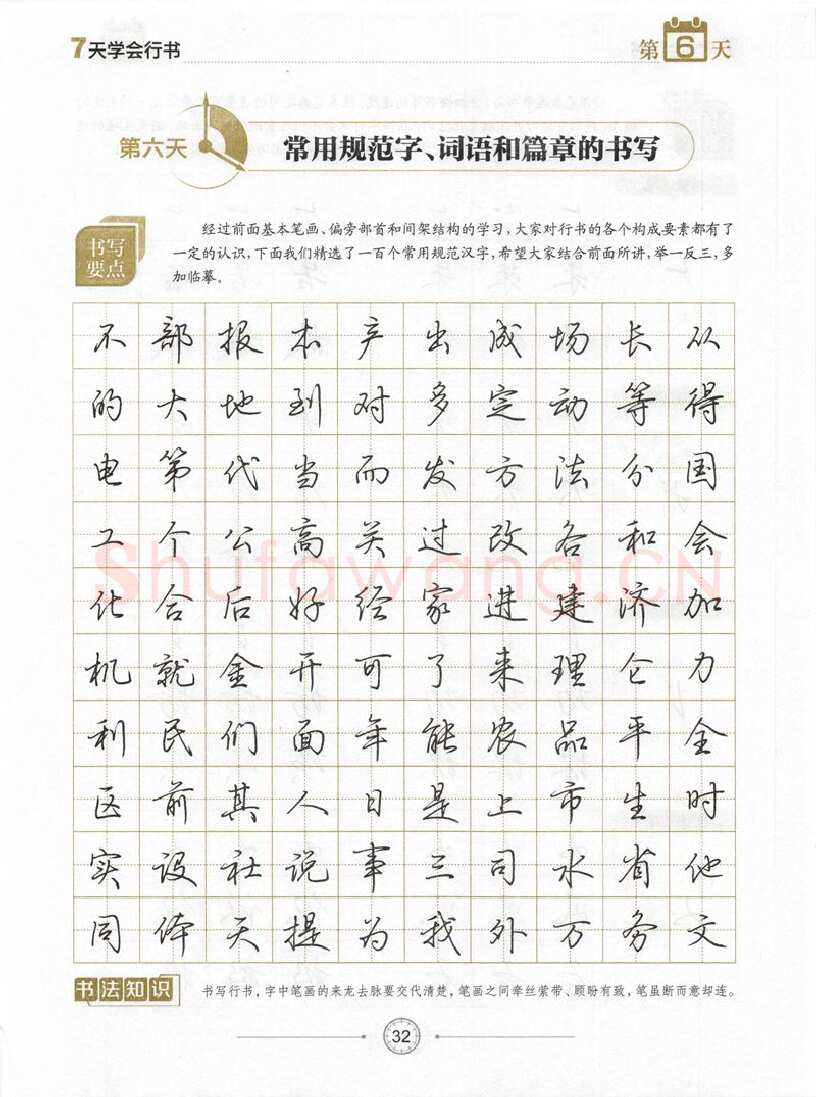 7天学会行书
第6天
第六天
常用规范字、词语和篇章的书写
书写
要点
经过前面基本笔画、偏旁部首和间架结构的学习,大家对行书的各个构成要素都有了
一定的认识,下面我们精选了一百个常用规范汉字,希望大家结合前面所讲,举一反三,多
加临摹。
不部报本产出成场长从
的大地到对多定动等得
电第代当而发方法分国
工个公高关过改各和会
Shufawang.CN
化合后好经家进建济加
机就金开可了来理仑力
利民们面年能农品平全
区前其人日是上市生时
实设社说事三司水省他
同体天提为我外万务文
书法知识
书写行书,字中笔画的来龙去脉要交代清楚,笔画之间牵丝萦带、顾盼有致,笔虽断而意却连。
32